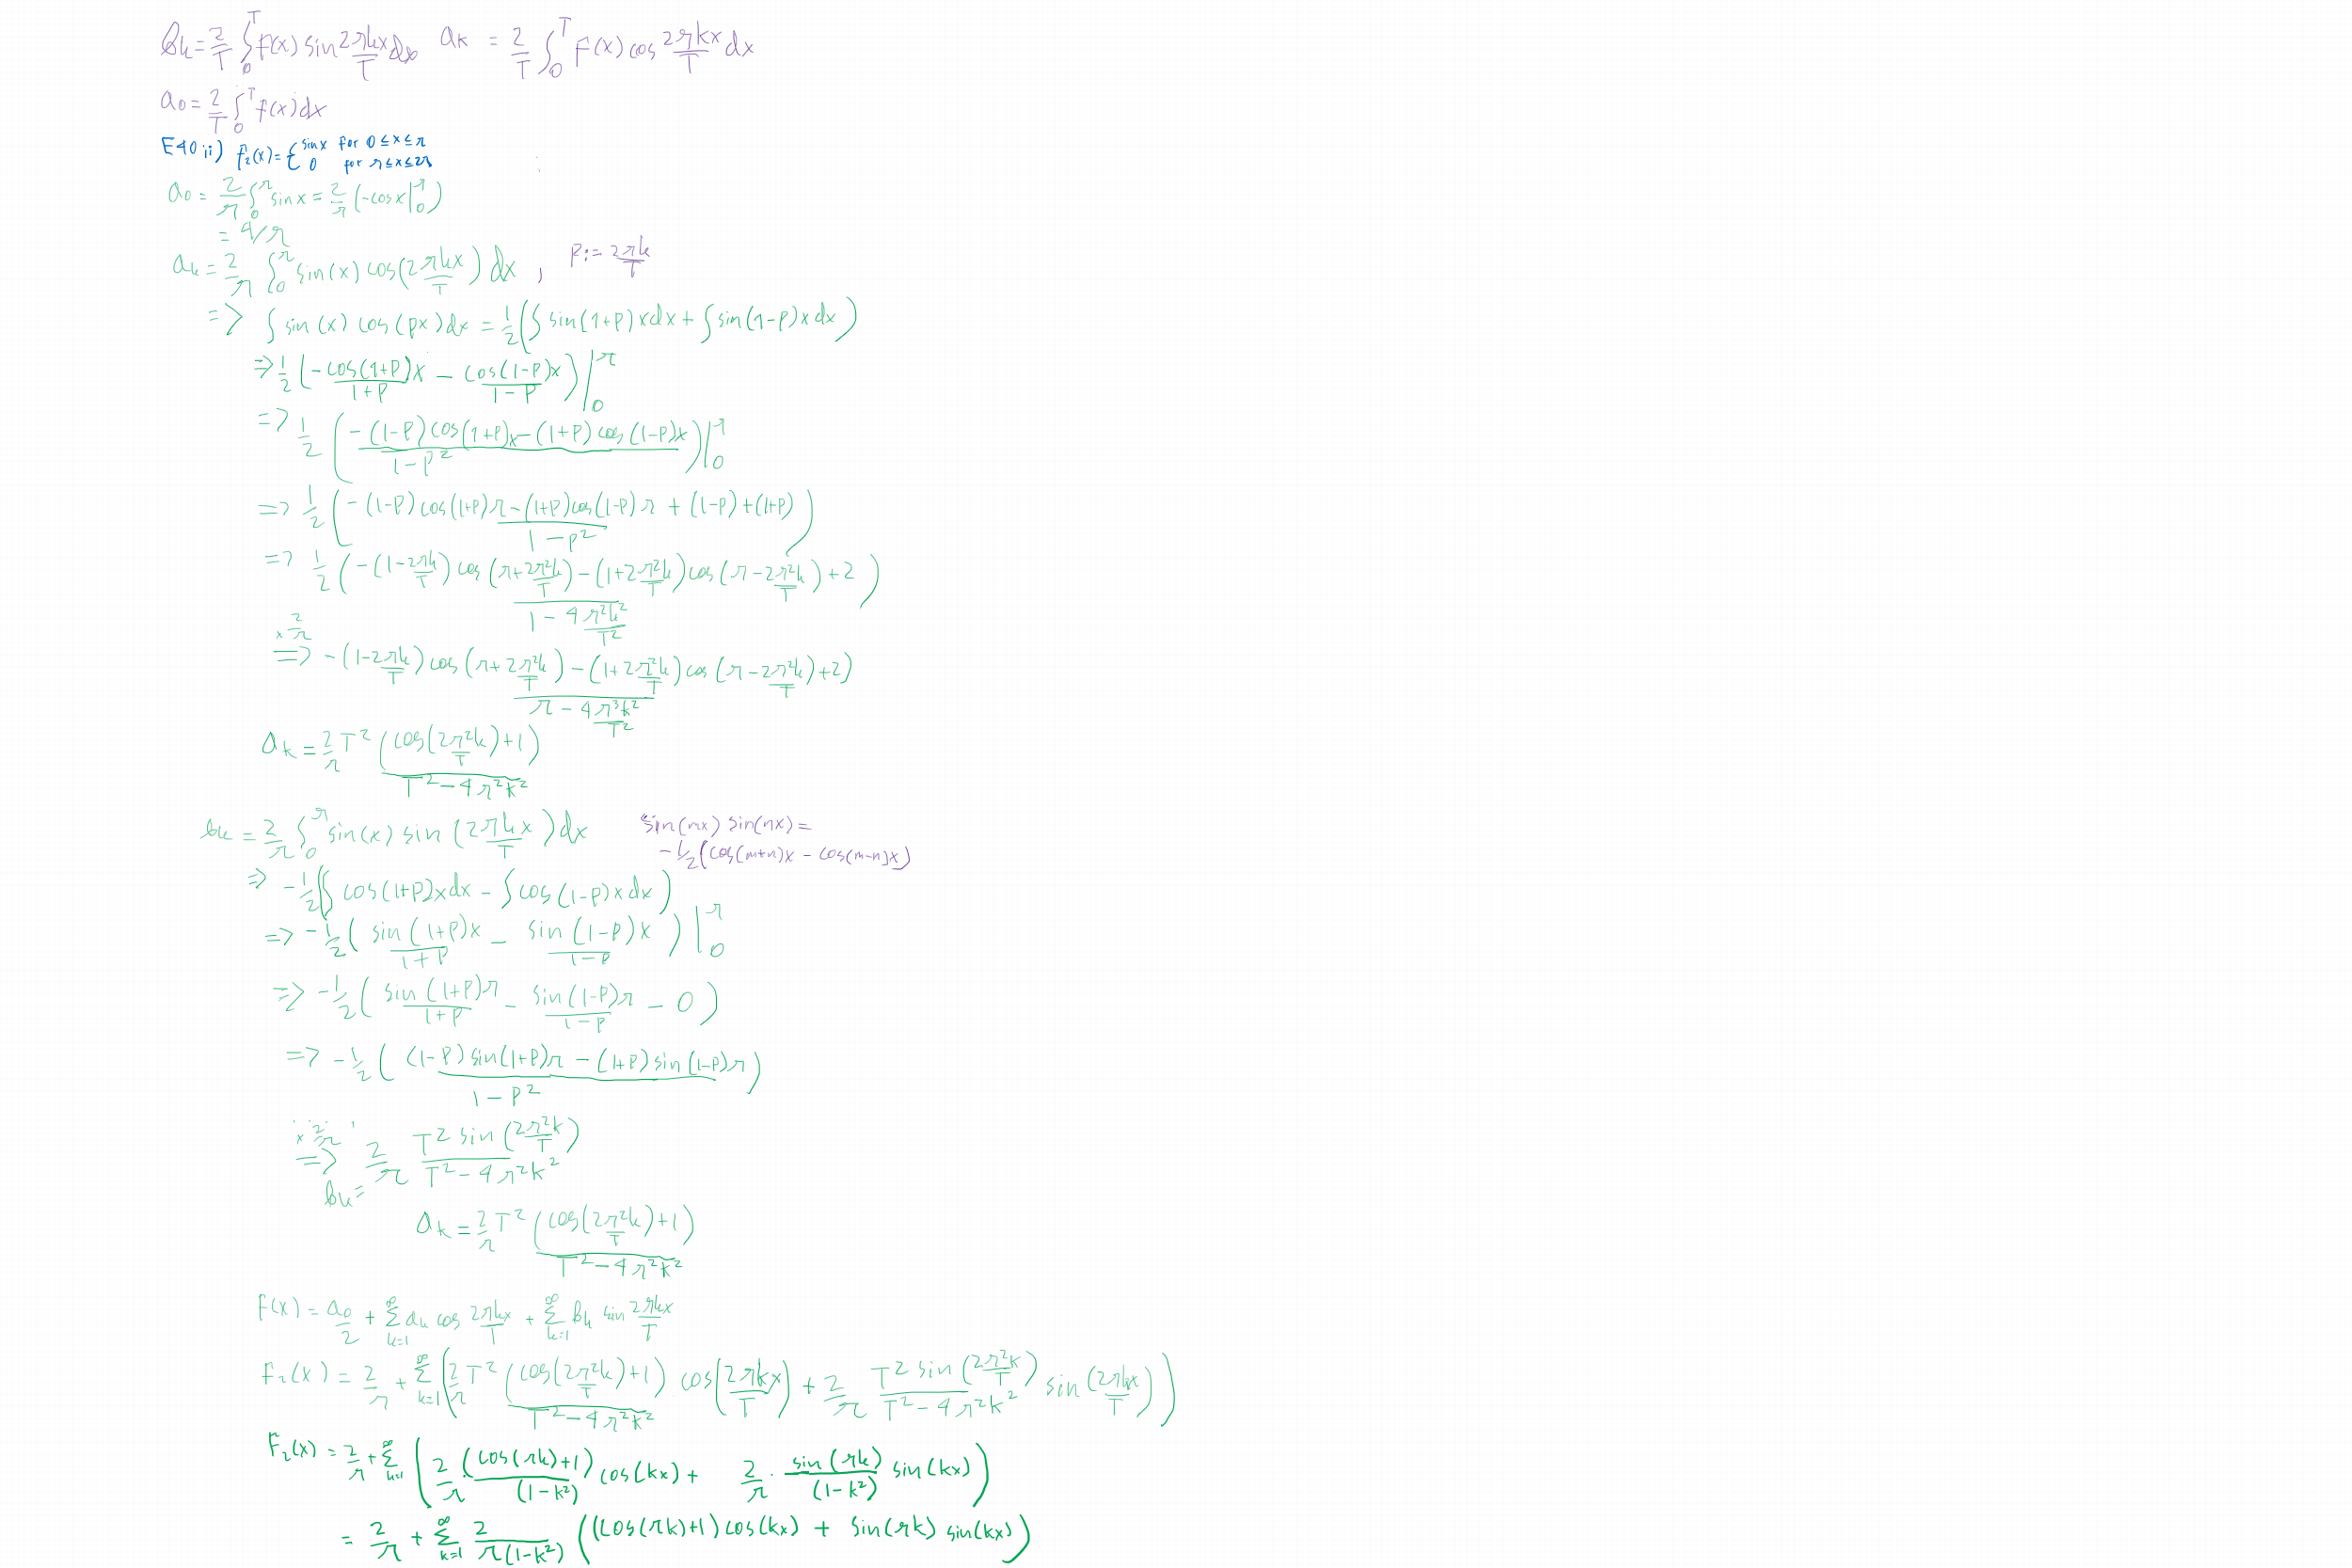 b_k = 2/T ∫_0^T f(x) sin 2πkx/T dx   a_k = 2/T ∫_0^T f(x) cos 2πkx/T dx
a_0 = 2/T ∫_0^T f(x) dx
E40 ii) f_2(x) = { sin x for 0 ≤ x ≤ π
0 for π ≤ x ≤ 2π
a_0 = 2/π ∫_0^π sin x = 2/π (-cos x |_0^π)
= 4/π
a_k = 2/π ∫_0^π sin(x) cos(2πkx/T) dx , p := 2πk/T
=> ∫ sin(x) cos(px) dx = 1/2 (∫ sin(1+p)x dx + ∫ sin(1-p)x dx)
=> 1/2 (-cos(1+p)x/(1+p) - cos(1-p)x/(1-p)) |_0^π
=> 1/2 ((-(1-p) cos(1+p)x - (1+p) cos(1-p)x)/(1-p^2)) |_0^π
=> 1/2 ((-(1-p) cos(1+p)π - (1+p) cos(1-p)π + (1-p) + (1+p))/(1-p^2))
=> 1/2 ((-(1-2πk/T) cos(π+2π^2k/T) - (1+2π^2k/T) cos(π-2π^2k/T) + 2)/(1-4π^2k^2/T^2))
x 2/π
=> (-(1-2πk/T) cos(π+2π^2k/T) - (1+2π^2k/T) cos(π-2π^2k/T) + 2)/(π-4π^3k^2/T^2)
a_k = 2/π T^2 (cos(2π^2k/T)+1)/(T^2-4π^2k^2)
b_k = 2/π ∫_0^π sin(x) sin(2πkx/T) dx   sin(mx) sin(nx) =
-1/2 (cos(m+n)x - cos(m-n)x)
=> -1/2 (∫ cos(1+p)x dx - ∫ cos(1-p)x dx)
=> -1/2 (sin(1+p)x/(1+p) - sin(1-p)x/(1-p)) |_0^π
=> -1/2 (sin(1+p)π/(1+p) - sin(1-p)π/(1-p) - 0)
=> -1/2 (((1-p) sin(1+p)π - (1+p) sin(1-p)π)/(1-p^2))
x 2/π
=> b_k = 2/π T^2 sin(2π^2k/T)/(T^2-4π^2k^2)
a_k = 2/π T^2 (cos(2π^2k/T)+1)/(T^2-4π^2k^2)
F(x) = a_0/2 + Σ_{k=1}^∞ a_k cos 2πkx/T + Σ_{k=1}^∞ b_k sin 2πkx/T
F_2(x) = 2/π + Σ_{k=1}^∞ (2/π T^2 (cos(2π^2k/T)+1)/(T^2-4π^2k^2) cos(2πkx/T) + 2/π T^2 sin(2π^2k/T)/(T^2-4π^2k^2) sin(2πkx/T))
F_2(x) = 2/π + Σ_{k=1}^∞ (2/π (cos(πk)+1)/(1-k^2) cos(kx) + 2/π · sin(πk)/(1-k^2) sin(kx))
= 2/π + Σ_{k=1}^∞ 2/(π(1-k^2)) ((cos(πk)+1) cos(kx) + sin(πk) sin(kx))